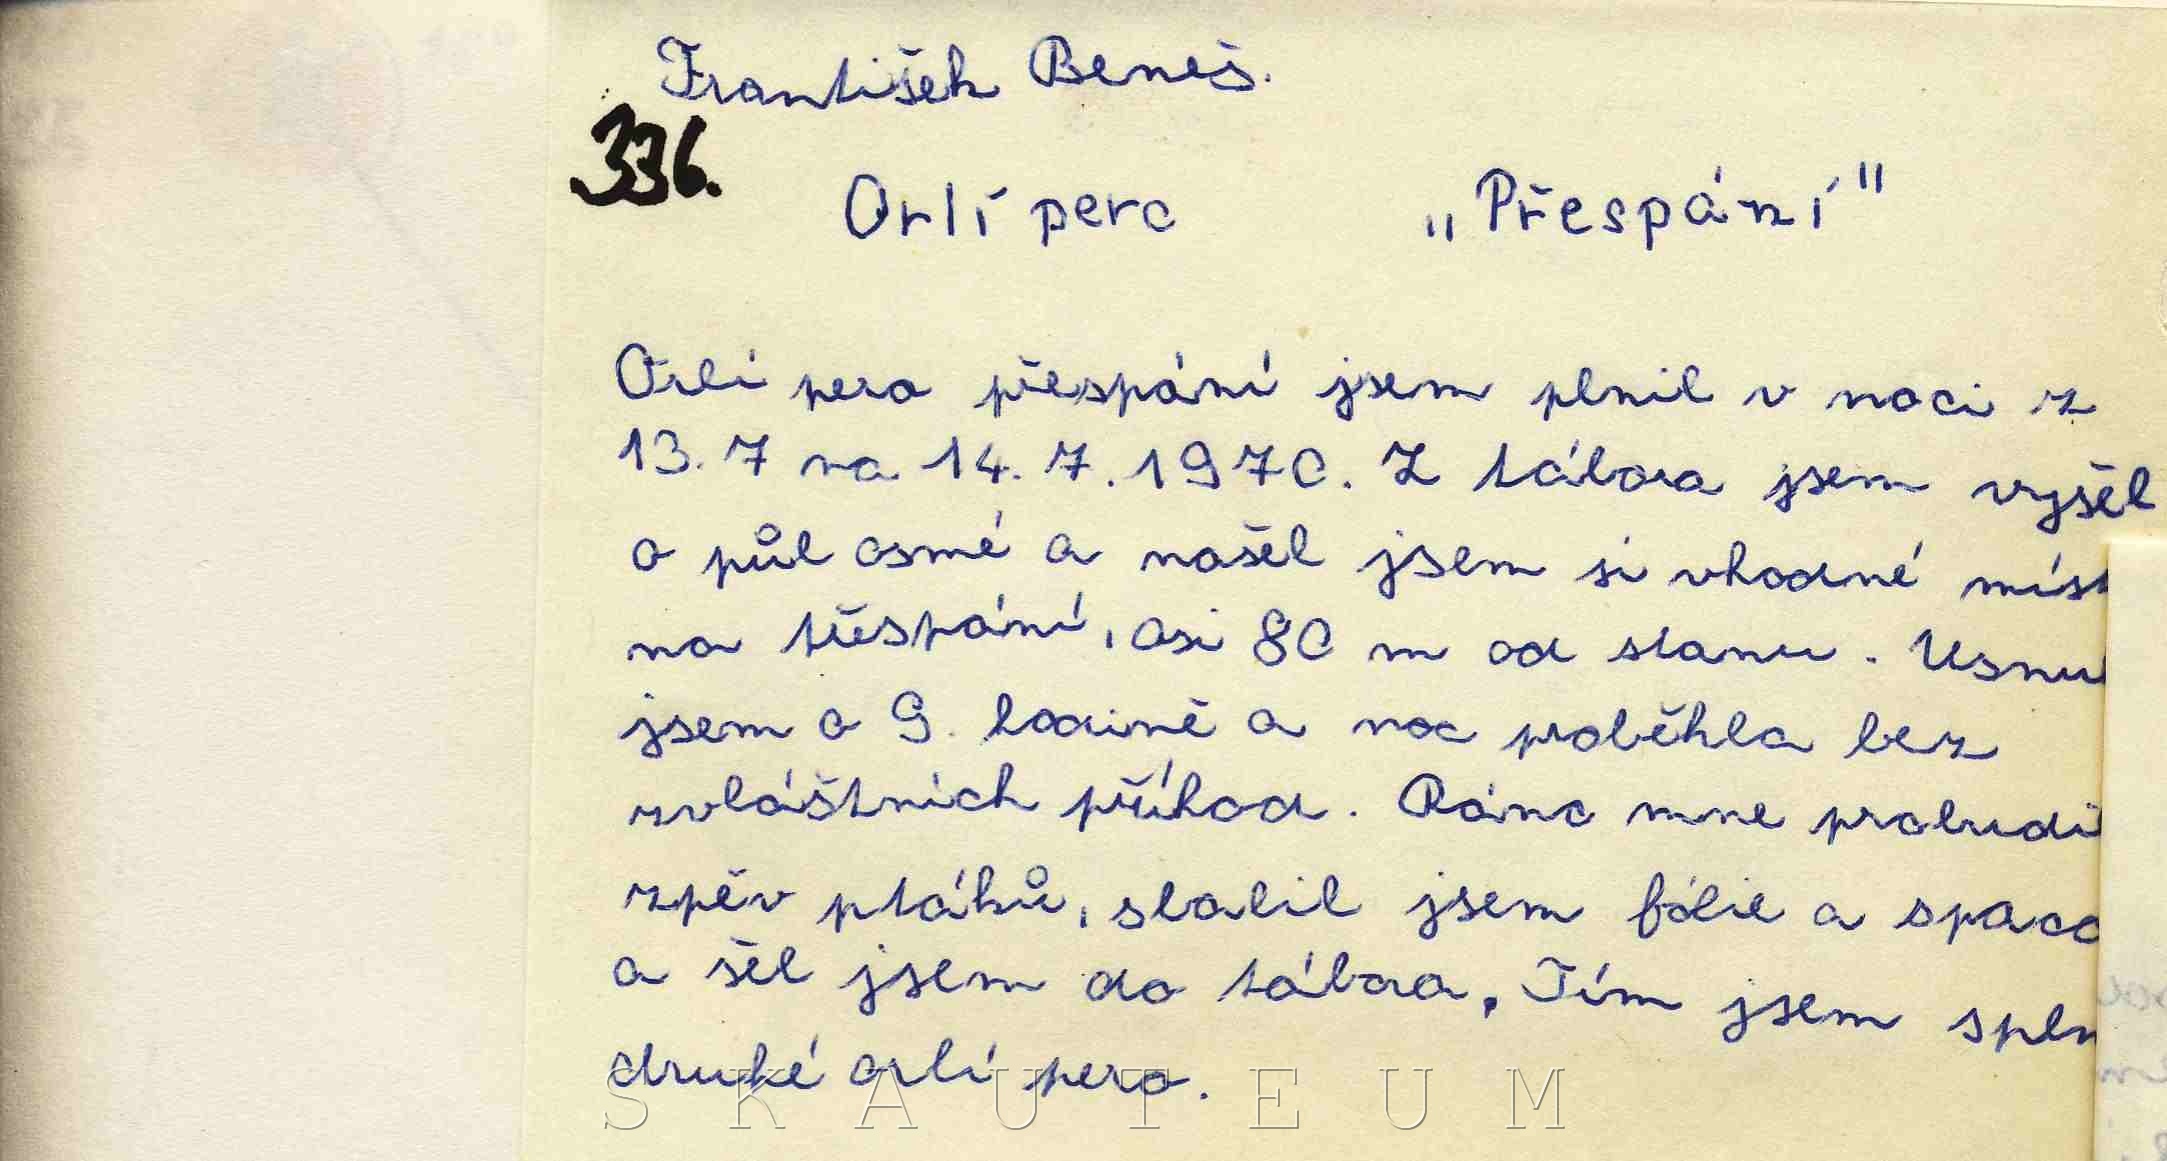 František Beneš.
336.
Orlí pero „Přespání"
Orlí pero přespání jsem plnil v noci z
13. 7 na 14. 7. 1970. Z tábora jsem vyšel
o půl osmé a našel jsem si vhodné míst
na třespání, asi 80 m od stanu. Usnul
jsem o 9. hodině a noc proběhla bez
zvláštních příhod. Ráno mne probudil
zpěv ptáků, sbalil jsem fólie a spac
a šel jsem do tábora. Tím jsem spln
druhé orlí pero.
SKAUTEUM